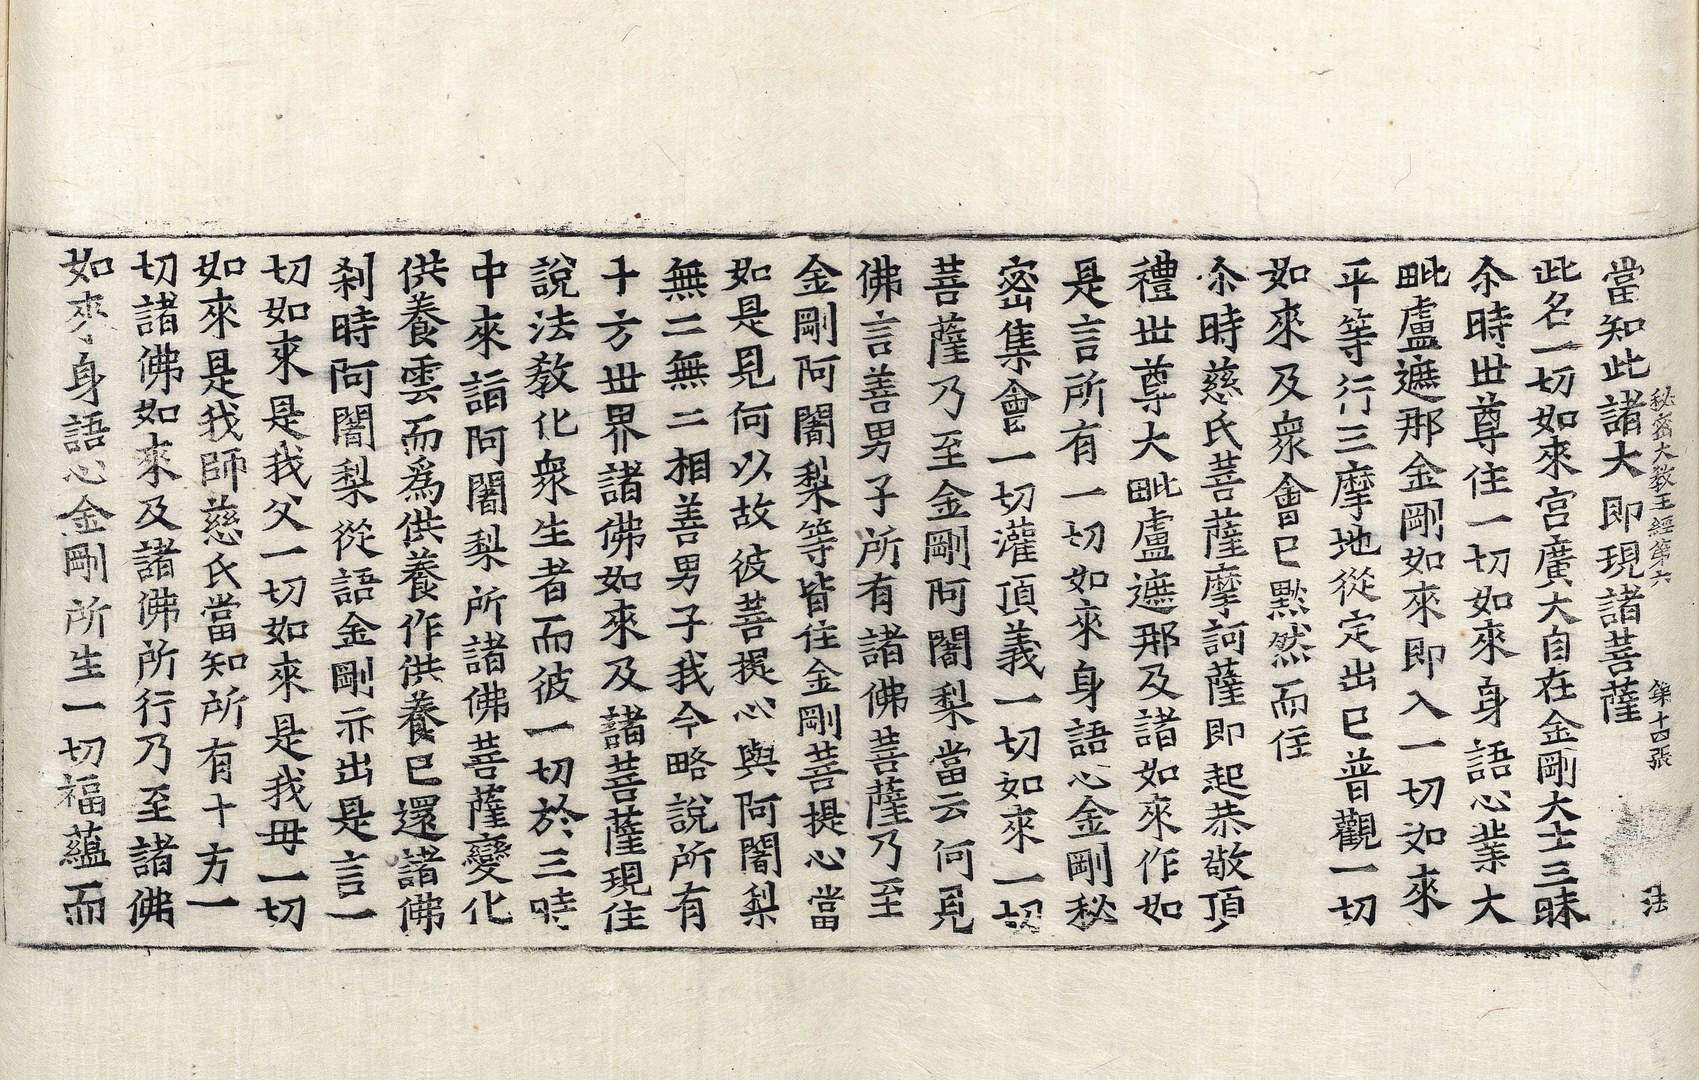 秘密大教王經第六　第十四張　法
當知此諸大即現諸菩薩
此名一切如來宮廣大自在金剛大士三昧
尒時世尊住一切如來身語心業大
毗盧遮那金剛如來即入一切如來
平等行三摩地從定出已普觀一切
如來及衆會已黙然而住
尒時慈氏菩薩摩訶薩即起恭敬頂
禮世尊大毗盧遮那及諸如來作如
是言所有一切如來身語心金剛秘
密集會一切灌頂義一切如來一切
菩薩乃至金剛阿闍梨當云何見
佛言善男子所有諸佛菩薩乃至
金剛阿闍梨等皆住金剛菩提心當
如是見何以故彼菩提心與阿闍梨
無二無二相善男子我今略說所有
十方世界諸佛如來及諸菩薩現住
說法教化衆生者而彼一切於三時
中來詣阿闍梨所諸佛菩薩變化
供養雲而爲供養作供養已還諸佛
刹時阿闍梨從語金剛亦出是言一
切如來是我父一切如來是我母一切
如來是我師慈氏當知所有十方一
切諸佛如來及諸佛所行乃至諸佛
如來身語心金剛所生一切福蘊而